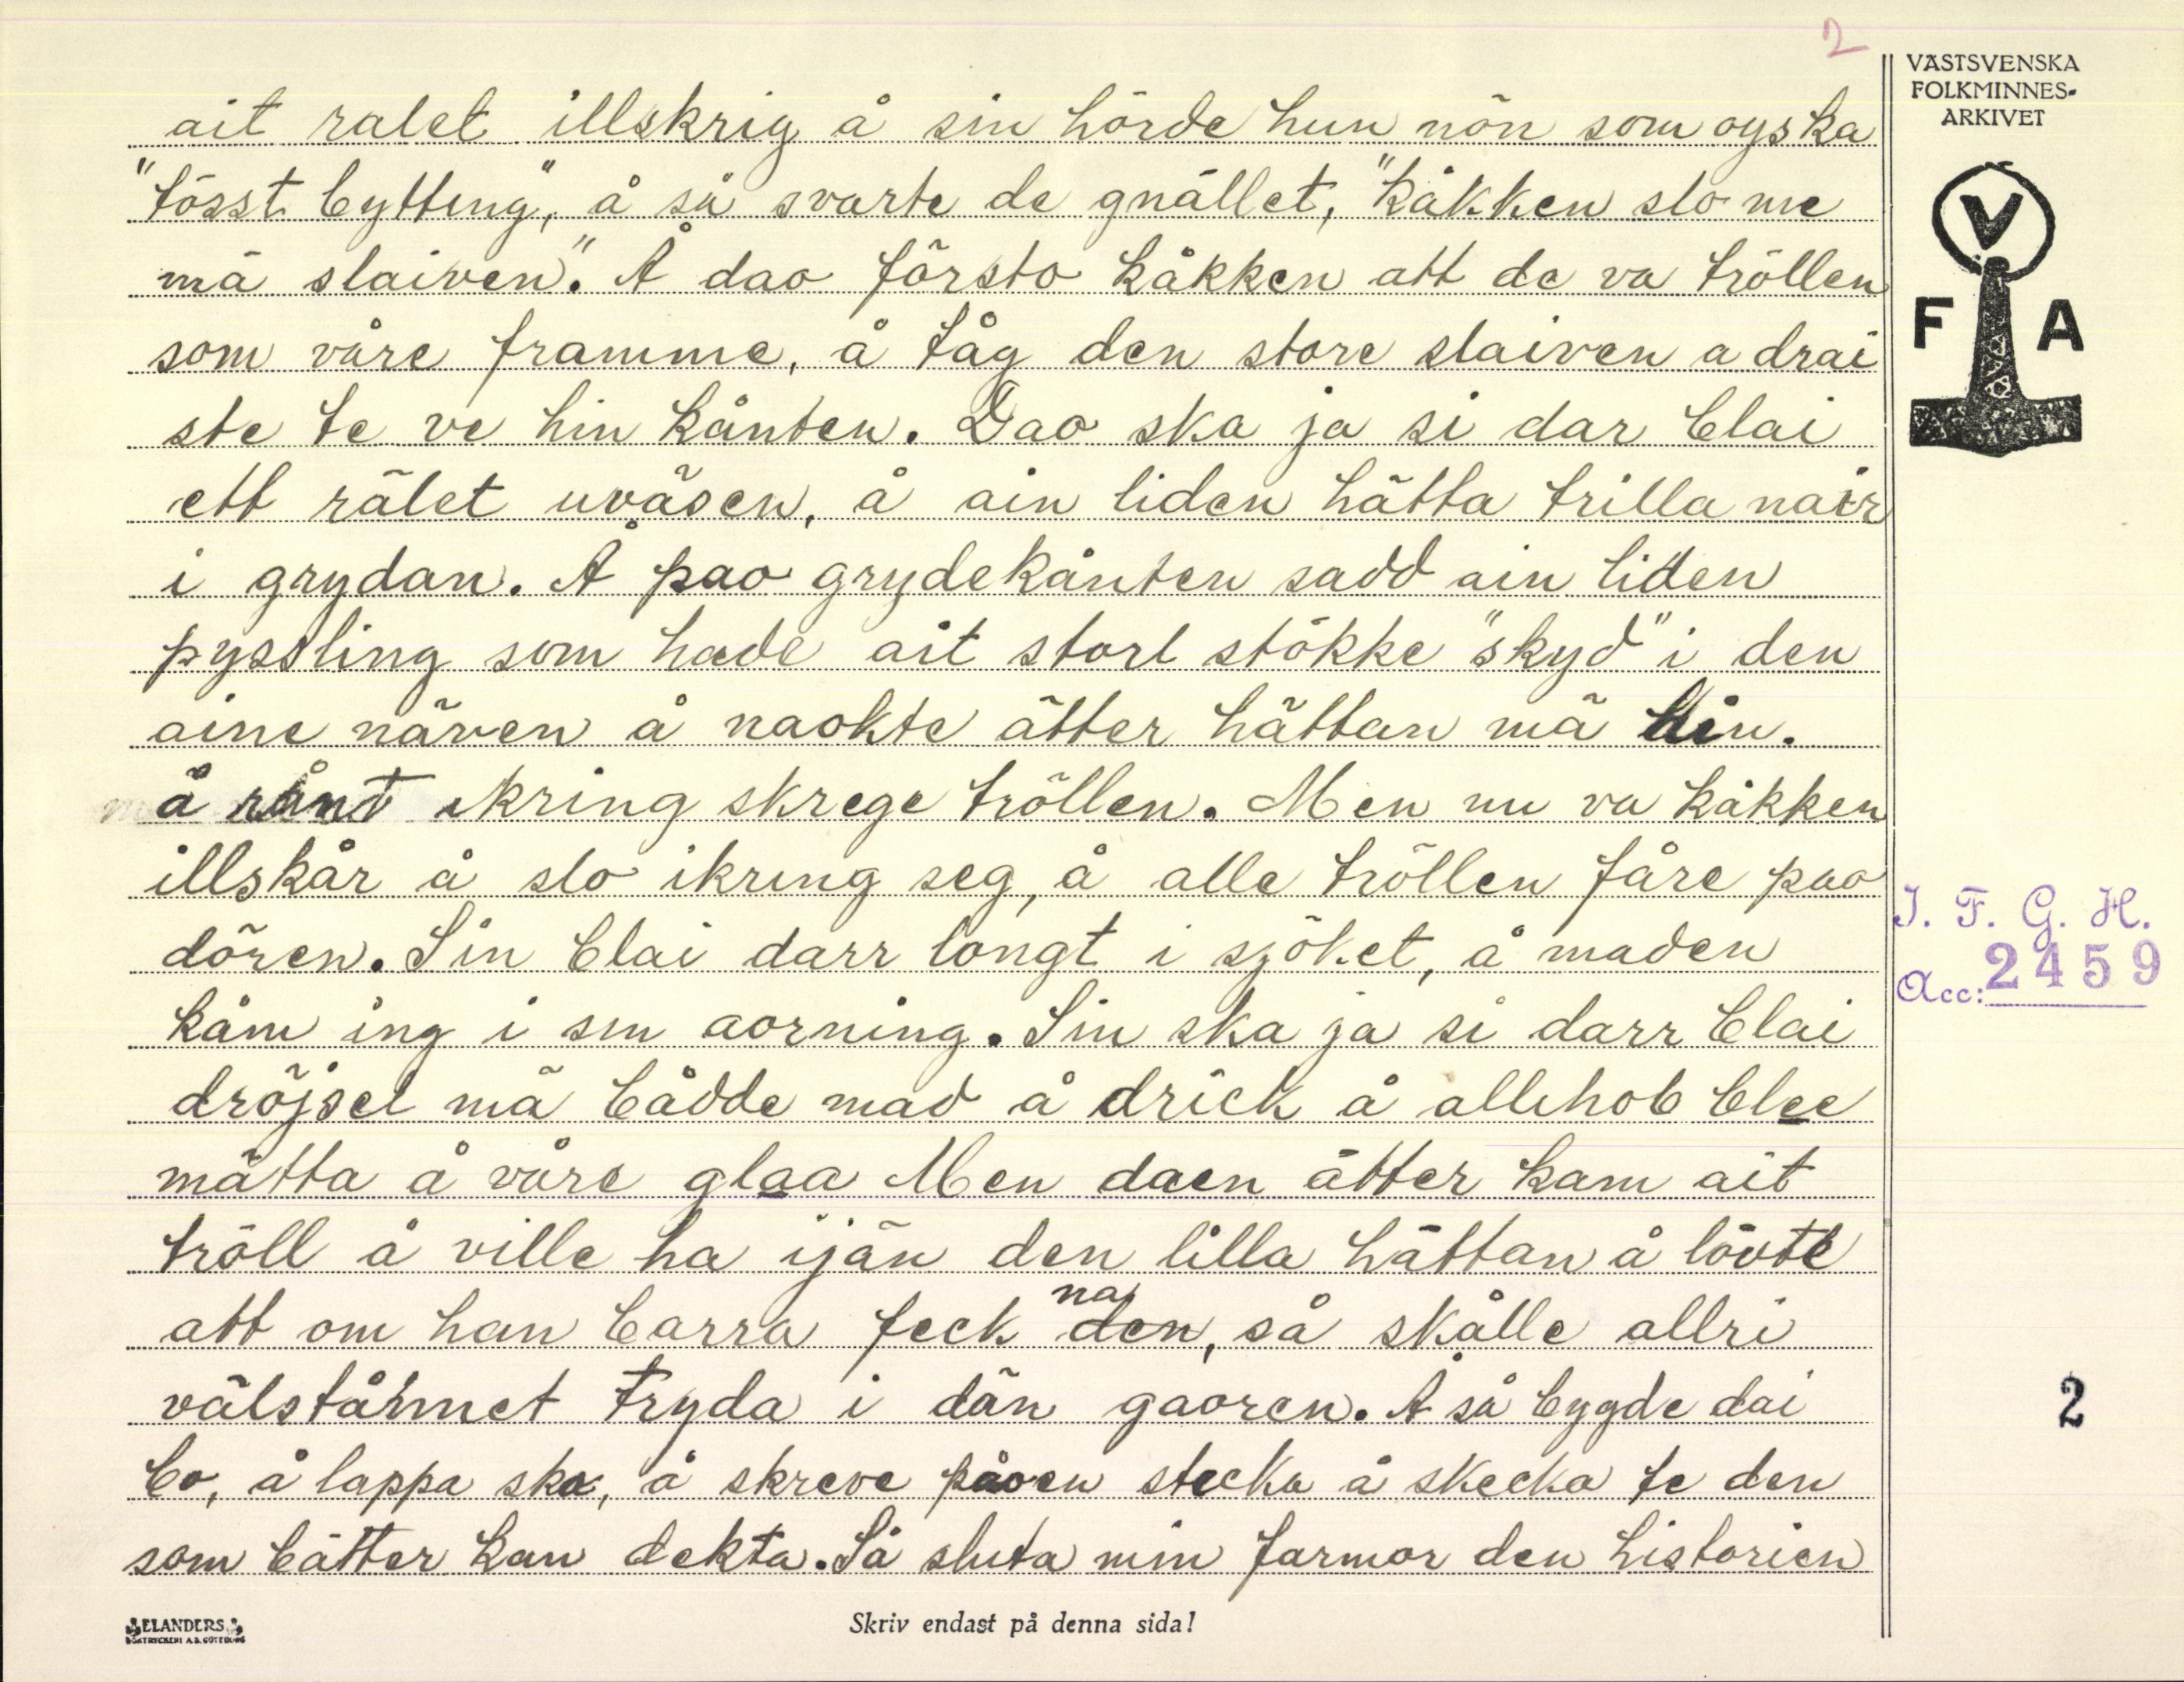 2
VÄSTSVENSKA
FOLKMINNES-
ARKIVET
V
F A
ait ralet illskrig å sin hörde hun nön som oyska
"tösst bytting", å så svarte de gnället, "kåkken slo me
mä slaiven". Å dao försto kåkken att de va tröllen
som våre framme, å tåg den store slaiven a drai
ste te ve hin kånten. Dao ska ja si dar blai
ett rälet uväsen, å ain liden hätta trilla nair
i grydan. Å pao grydekånten sadd ain liden
pyssling som hade ait stort stökke "skyd" i den
aine näven å naokte ätter hättan mä hin.
å rånt ikring skrege tröllen. Men nu va kåkken
illskår å slo ikring seg, å alle tröllen fåre pao
dören. Sin blai darr longt i sjöket, å maden
kåm ing i sin aorning. Sin ska ja si darr blai
dröjsel mä bådde mad å drick å allihob blee
mätta å våre glaa Men daen ätter kam ait
tröll å ville ha ijän den lilla hättan å lövte
att om han barra feck den, så skålle allri
na
välstånnet tryda i dän gaoren. Å så bygde dai
bo, å lappa sko, å skreve påoen stecka å skecka te den
som bätter kan dekta. Så sluta min farmor den historien
I. F. G. H.
Acc: 2459
2
ELANDERS
BOKTRYCKERI A.B. GÖTEBORG
Skriv endast på denna sida!